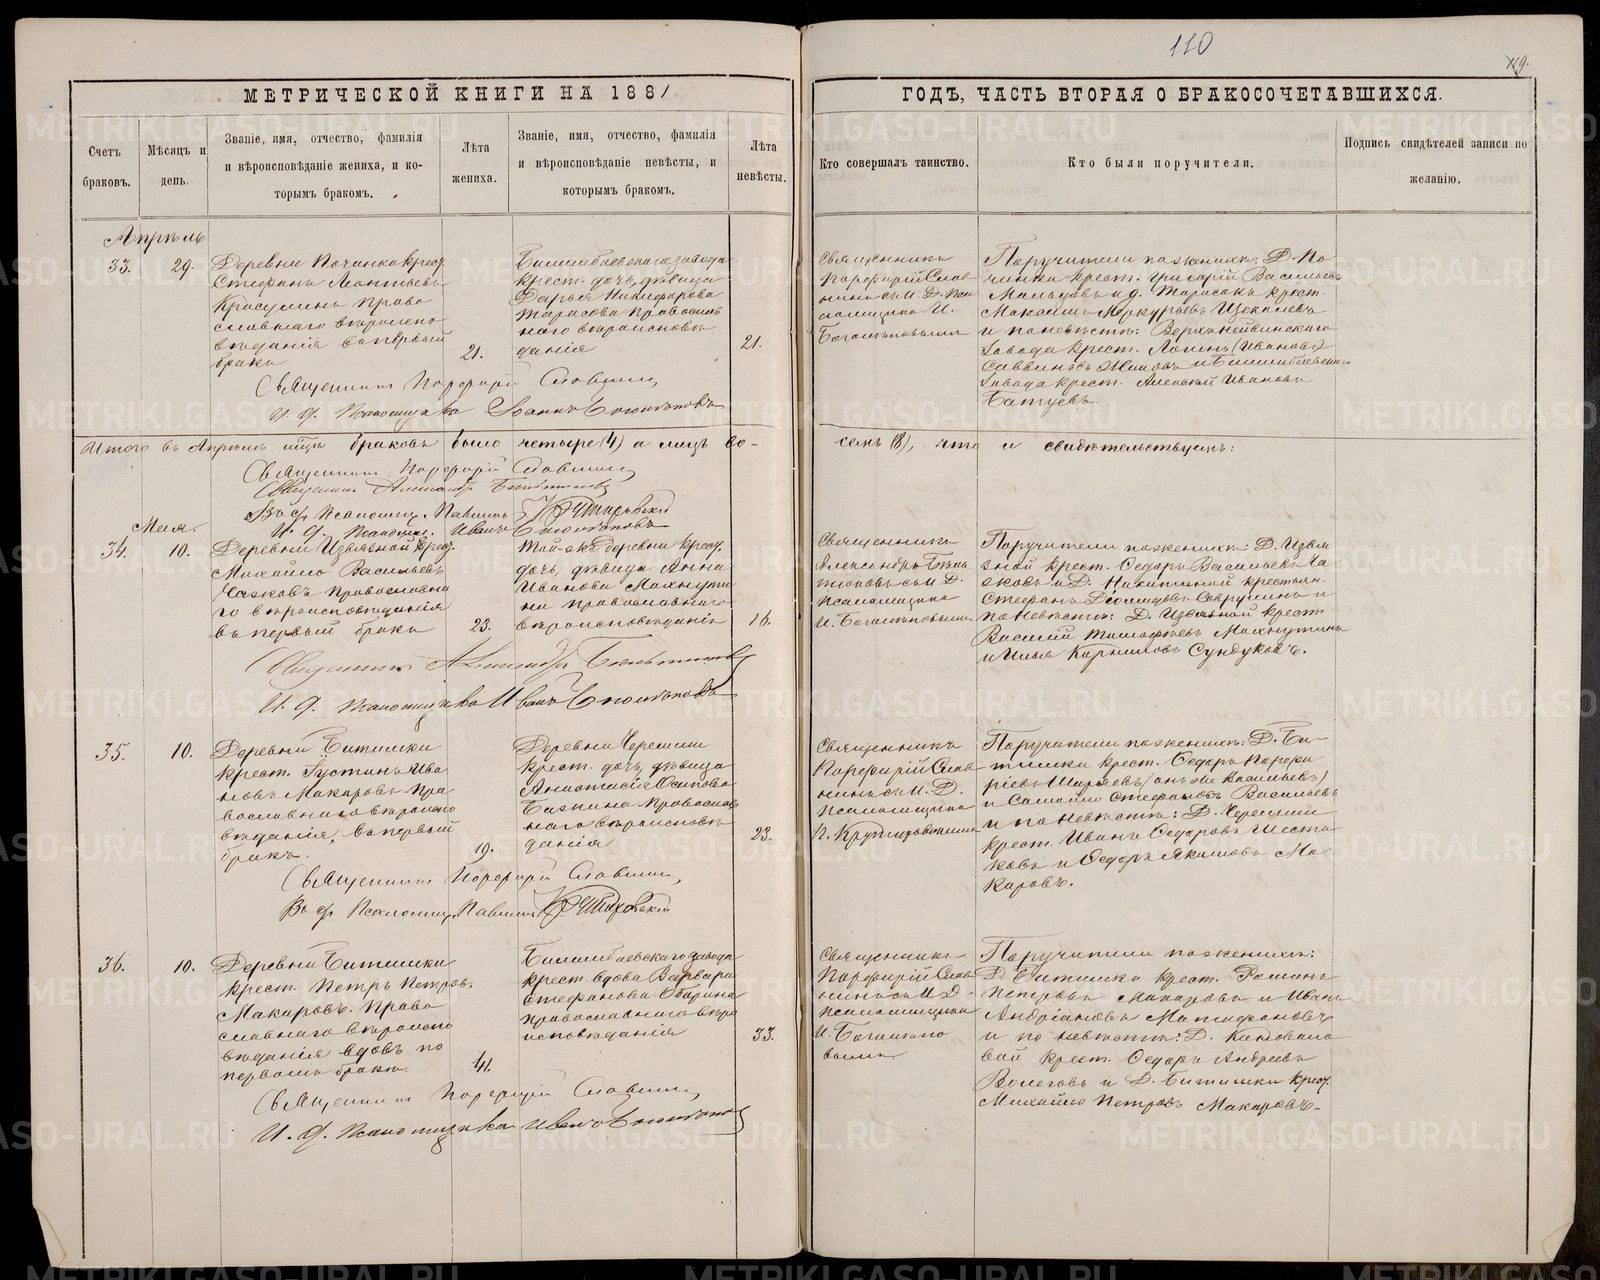 110
119.
МЕТРИЧЕСКОЙ КНИГИ НА 1881
ГОДЪ, ЧАСТЬ ВТОРАЯ О БРАКОСОЧЕТАВШИХСЯ.
Счетъ
браковъ.
Мѣсяцъ и
день.
Званіе, имя, отчество, фамилія
и вѣроисповѣданіе жениха, и ко-
торымъ бракомъ.
Лѣта
жениха.
Званіе, имя, отчество, фамилія
и вѣроисповѣданіе невѣсты, и
которымъ бракомъ.
Лѣта
невѣсты.
Кто совершалъ таинство.
Кто были поручители.
Подпись свидѣтелей записи по
желанію.
Апрѣль
33.
29.
Деревни Починка крест.
Стефанъ Леонтьевъ
Красулинъ право
славнаго вѣроиспо
вѣданія въ первый
бракъ
21.
Билимбаевскаго завода
крест. дочь, дѣвица
Дарья Никифорова
Тарасова православ
наго вѣроисповѣ
данія
21.
Священникъ
Порфирій Слав
нинъ съ И. Д. Пса
ломщика И.
Богомѣповымъ
Поручители по женихѣ: Д. По
чинка крест. Григорій Васильевъ
Мальцовъ и д. Тарасокъ крест.
Максимъ Меркурьевъ
и по невѣстѣ: Верхонейвинскаго
завода крест. Логинъ (Ивановъ)
Саввинъ и Билимбаевскаго
завода крест. Алексѣй Ивановъ
Батуевъ.
Священникъ Порфирій Славнинъ
И. д. Псаломщика Іоаннъ Богомѣповъ
Итого въ Апрѣлѣ м҃цѣ браковъ было четыре (4) а лицъ во-
семь (8), что и свидѣтельствуемъ:
Священникъ Порфирій Славнинъ
Священникъ Александръ
И. д. Псаломщ. Иванъ Богомѣповъ
Мая.
34.
10.
Деревни Извѣзной крест.
Михайло Васильевъ
Чазковъ православна
го вѣроисповѣданія
въ первый бракъ
23.
Той-же деревни крест.
дочь, дѣвица Анна
Иванова Махнутин
на православнаго
вѣроисповѣданія
16.
Священникъ
Александръ
съ И. Д.
Псаломщика
И. Богомѣповымъ
Поручители по женихѣ: Д. Извѣз
ной крест. Ѳедоръ Васильевъ Ча
зковъ и Д. Никитиной крестьян.
Стефанъ Діомидовъ Саврулинъ и
по невѣстѣ: Д. Извѣзной крест.
Василій Тимофѣевъ Махнутинъ
и Илья Корниловъ Сундуковъ.
Священникъ Александръ
И. д. Псаломщика Иванъ Богомѣповъ
35.
10.
Деревни Битимки
крест. Густинъ Ива
новъ Макаровъ пра
вославнаго вѣроиспо
вѣданія, въ первый
бракъ.
19.
Деревни Черемши
крест. дочь, дѣвица
Анастасія Осипова
Базкина православ
наго вѣроисповѣ
данія
23.
Священникъ
Порфирій Слав
нинъ съ И. Д.
Псаломщика
П. Крутиховскимъ
Поручители по женихѣ: Д. Би-
тимки крест. Ѳедоръ Порфи
ріевъ Ширяевъ (онъ же Васильевъ)
и Самойло Стефановъ Васильевъ
и по невѣстѣ: Д. Черемши
крест. Иванъ Ѳедоровъ Шеста
ковъ и Ѳедоръ Якимовъ Ма
каровъ.
Священникъ Порфирій Славнинъ
36.
10.
Деревни Битимки
крест. Петръ Петровъ
Макаровъ. Право
славнаго вѣроиспо
вѣданія вдовъ по
первомъ бракѣ
41.
Билимбаевскаго завода
крест. вдова Варвара
Стефанова Оборина
православнаго вѣро
исповѣданія
33.
Священникъ
Порфирій Слав
нинъ съ И Д.
Псаломщика
И. Богомѣпо
вымъ
Поручители по женихѣ:
Д. Битимки крест. Романъ
Петровъ Макаровъ и Иванъ
Андріановъ Матафоновъ
и по невѣстѣ: Д. Коновало
вой крест. Ѳедоръ Андреевъ
Волеговъ и Д. Битимки крест.
Михайло Петровъ Макаровъ.
Священникъ Порфирій Славнинъ
И. д. Псаломщика Иванъ Богомѣповъ
METRIKI.GASO-URAL.RU